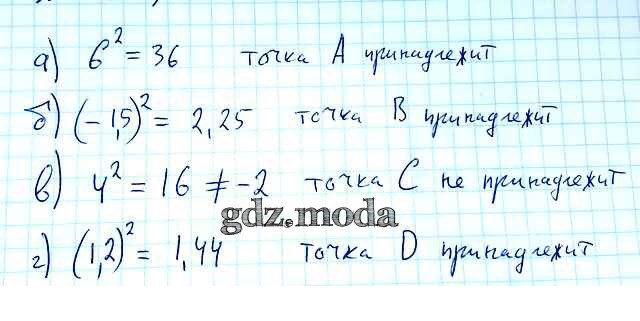 а) 6² = 36 точка А принадлежит
б) (-1,5)² = 2,25 точка В принадлежит
в) 4² = 16 ≠ -2 точка С не принадлежит
gdz.moda
г) (1,2)² = 1,44 точка D принадлежит